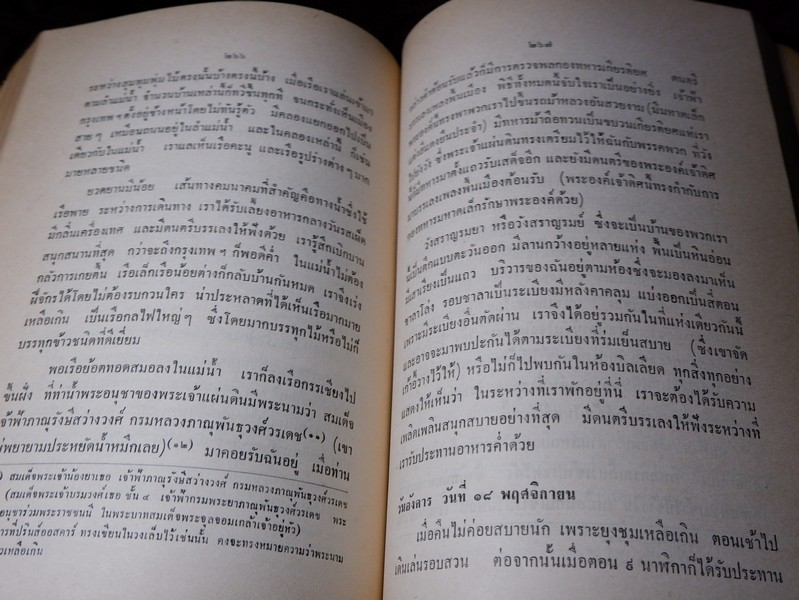 ๒๖๖
ระหว่างสุมทุมพุ่มไม้ตรงนั้นบ้างตรงนี้บ้าง เมื่อเรือเราแล่นเข้ามา
ตามลำแม่น้ำ จำนวนบ้านเหล่านี้ก็ทวีขึ้นทุกที จนกระทั่งเห็นเมือง
กรุงเทพฯ ตั้งอยู่ข้างหน้าโดยไม่ทันรู้ตัว มีคลองแยกออกไปเป็น
สาย ๆ เหมือนถนนอยู่ในลำแม่น้ำ และในคลองเหล่านี้ ก็เช่น
เดียวกับในแม่น้ำ เราแลเห็นเรือคะนู และเรือรูปร่างต่าง ๆ มาก
มายหลายชนิด
ยวดยานมีน้อย เส้นทางคมนาคมที่สำคัญคือทางน้ำซึ่งใช้
เรือพาย ระหว่างการเดินทาง เราได้รับเลี้ยงอาหารกลางวันรสเผ็ด
มีกลิ่นเครื่องเทศ และมีดนตรีบรรเลงให้ฟังด้วย เรารู้สึกเบิกบาน
สนุกสนานที่สุด กว่าจะถึงกรุงเทพ ฯ ก็พอดีค่ำ ในแม่น้ำไม่ต้อง
กลัวการเกยตื้น เรือเล็กเรือน้อยต่างก็กลับบ้านกันหมด เราจึงเร่ง
ฝีจักรได้โดยไม่ต้องรบกวนใคร น่าประหลาดที่ได้เห็นเรือมากมาย
เหลือเกิน เป็นเรือกลไฟใหญ่ๆ ซึ่งโดยมากบรรทุกไม้หรือไม่ก็
บรรทุกข้าวชนิดที่ดีเยี่ยม
พอเรือย้อตทอดสมอลงในแม่น้ำ เราก็ลงเรือกรรเชียงไป
ขึ้นฝั่ง ที่ท่าน้ำพระอนุชาของพระเจ้าแผ่นดินมีพระนามว่า สมเด็จ
เจ้าฟ้าภาณุรังษีสว่างวงศ์ กรมหลวงภาณุพันธุวงศ์วรเดช(๑๑) (เขา
พยายามประหยัดน้ำหมึกเลย)(๑๒) มาคอยรับฉันอยู่ เมื่อท่าน
) สมเด็จพระเจ้าน้องยาเธอ เจ้าฟ้าภาณุรังษีสว่างวงศ์ กรมหลวงภาณุพันธุวงศ์วรเดช
(สมเด็จพระเจ้าบรมวงศ์เธอ ชั้น ๔ เจ้าฟ้ากรมพระยาภาณุพันธุวงศ์วรเดช พระ
อนุชาร่วมพระราชชนนี ในพระบาทสมเด็จพระจุลจอมเกล้าเจ้าอยู่หัว)
การที่ปรินส์ออสคาร์ ทรงเขียนในวงเล็บไว้เช่นนั้น คงจะทรงหมายความว่าพระนาม
เหลือเกิน
๒๖๗
ต้อนรับแล้วก็มีการตรวจพลกองทหารเกียรติยศ ดนตรี
เพลงพื้นเมือง พิธีทั้งหมดนี้จับใจเราเป็นอย่างยิ่ง เจ้าฟ้า
พระองค์นี้ทรงพาพวกเราไปขึ้นรถม้าหลวงอันสวยงาม (มีมหาดเล็ก
แต่งสีแดงยืนประจำ) มีทหารม้าถือทวนเป็นขบวนเกียรติยศแห่เรา
ไปยังวัง ซึ่งพระเจ้าแผ่นดินทรงเตรียมไว้ให้ฉันกับพรรคพวก ที่วัง
มีทหารมาตั้งแถวรับเสด็จอีก และยังมีดนตรีของพระองค์เจ้าดิศ
มาบรรเลงเพลงพื้นเมืองต้อนรับ (พระองค์เจ้าดิศนี้ทรงกำกับการ
กองทหารมหาดเล็กรักษาพระองค์ด้วย)
วังสราญรมยา หรือวังสราญรมย์ ซึ่งจะเป็นบ้านของพวกเรา
นี้เป็นตึกแบบตะวันออก มีลานกว้างอยู่หลายแห่ง พื้นเป็นหินอ่อน
มีเสาเรียงเป็นแถว บริวารของฉันอยู่ตามห้องซึ่งจะมองลงมาเห็น
ชาลาโล่ง รอบชาลาเป็นระเบียงมีหลังคาคลุม แบ่งออกเป็นสี่ตอน
เพราะมีระเบียงอื่นตัดผ่าน เราจึงได้อยู่รวมกันในที่แห่งเดียวกันนี้
และอาจจะมาพบปะกันได้ตามระเบียงที่ร่มเย็นสบาย (ซึ่งเขาจัด
เก้าอี้วางไว้ให้) หรือไม่ก็ไปพบกันในห้องบิลเลียด ทุกสิ่งทุกอย่าง
แสดงให้เห็นว่า ในระหว่างที่เราพักอยู่ที่นี่ เราจะต้องได้รับความ
เพลิดเพลินสนุกสบายอย่างที่สุด มีดนตรีบรรเลงให้ฟังระหว่างที่
เรารับประทานอาหารค่ำด้วย
วันอังคาร วันที่ ๑๘ พฤศจิกายน
เมื่อคืนไม่ค่อยสบายนัก เพราะยุงชุมเหลือเกิน ตอนเช้าไป
เดินเล่นรอบสวน ต่อจากนั้นเมื่อตอน ๙ นาฬิกาก็ได้รับประทาน